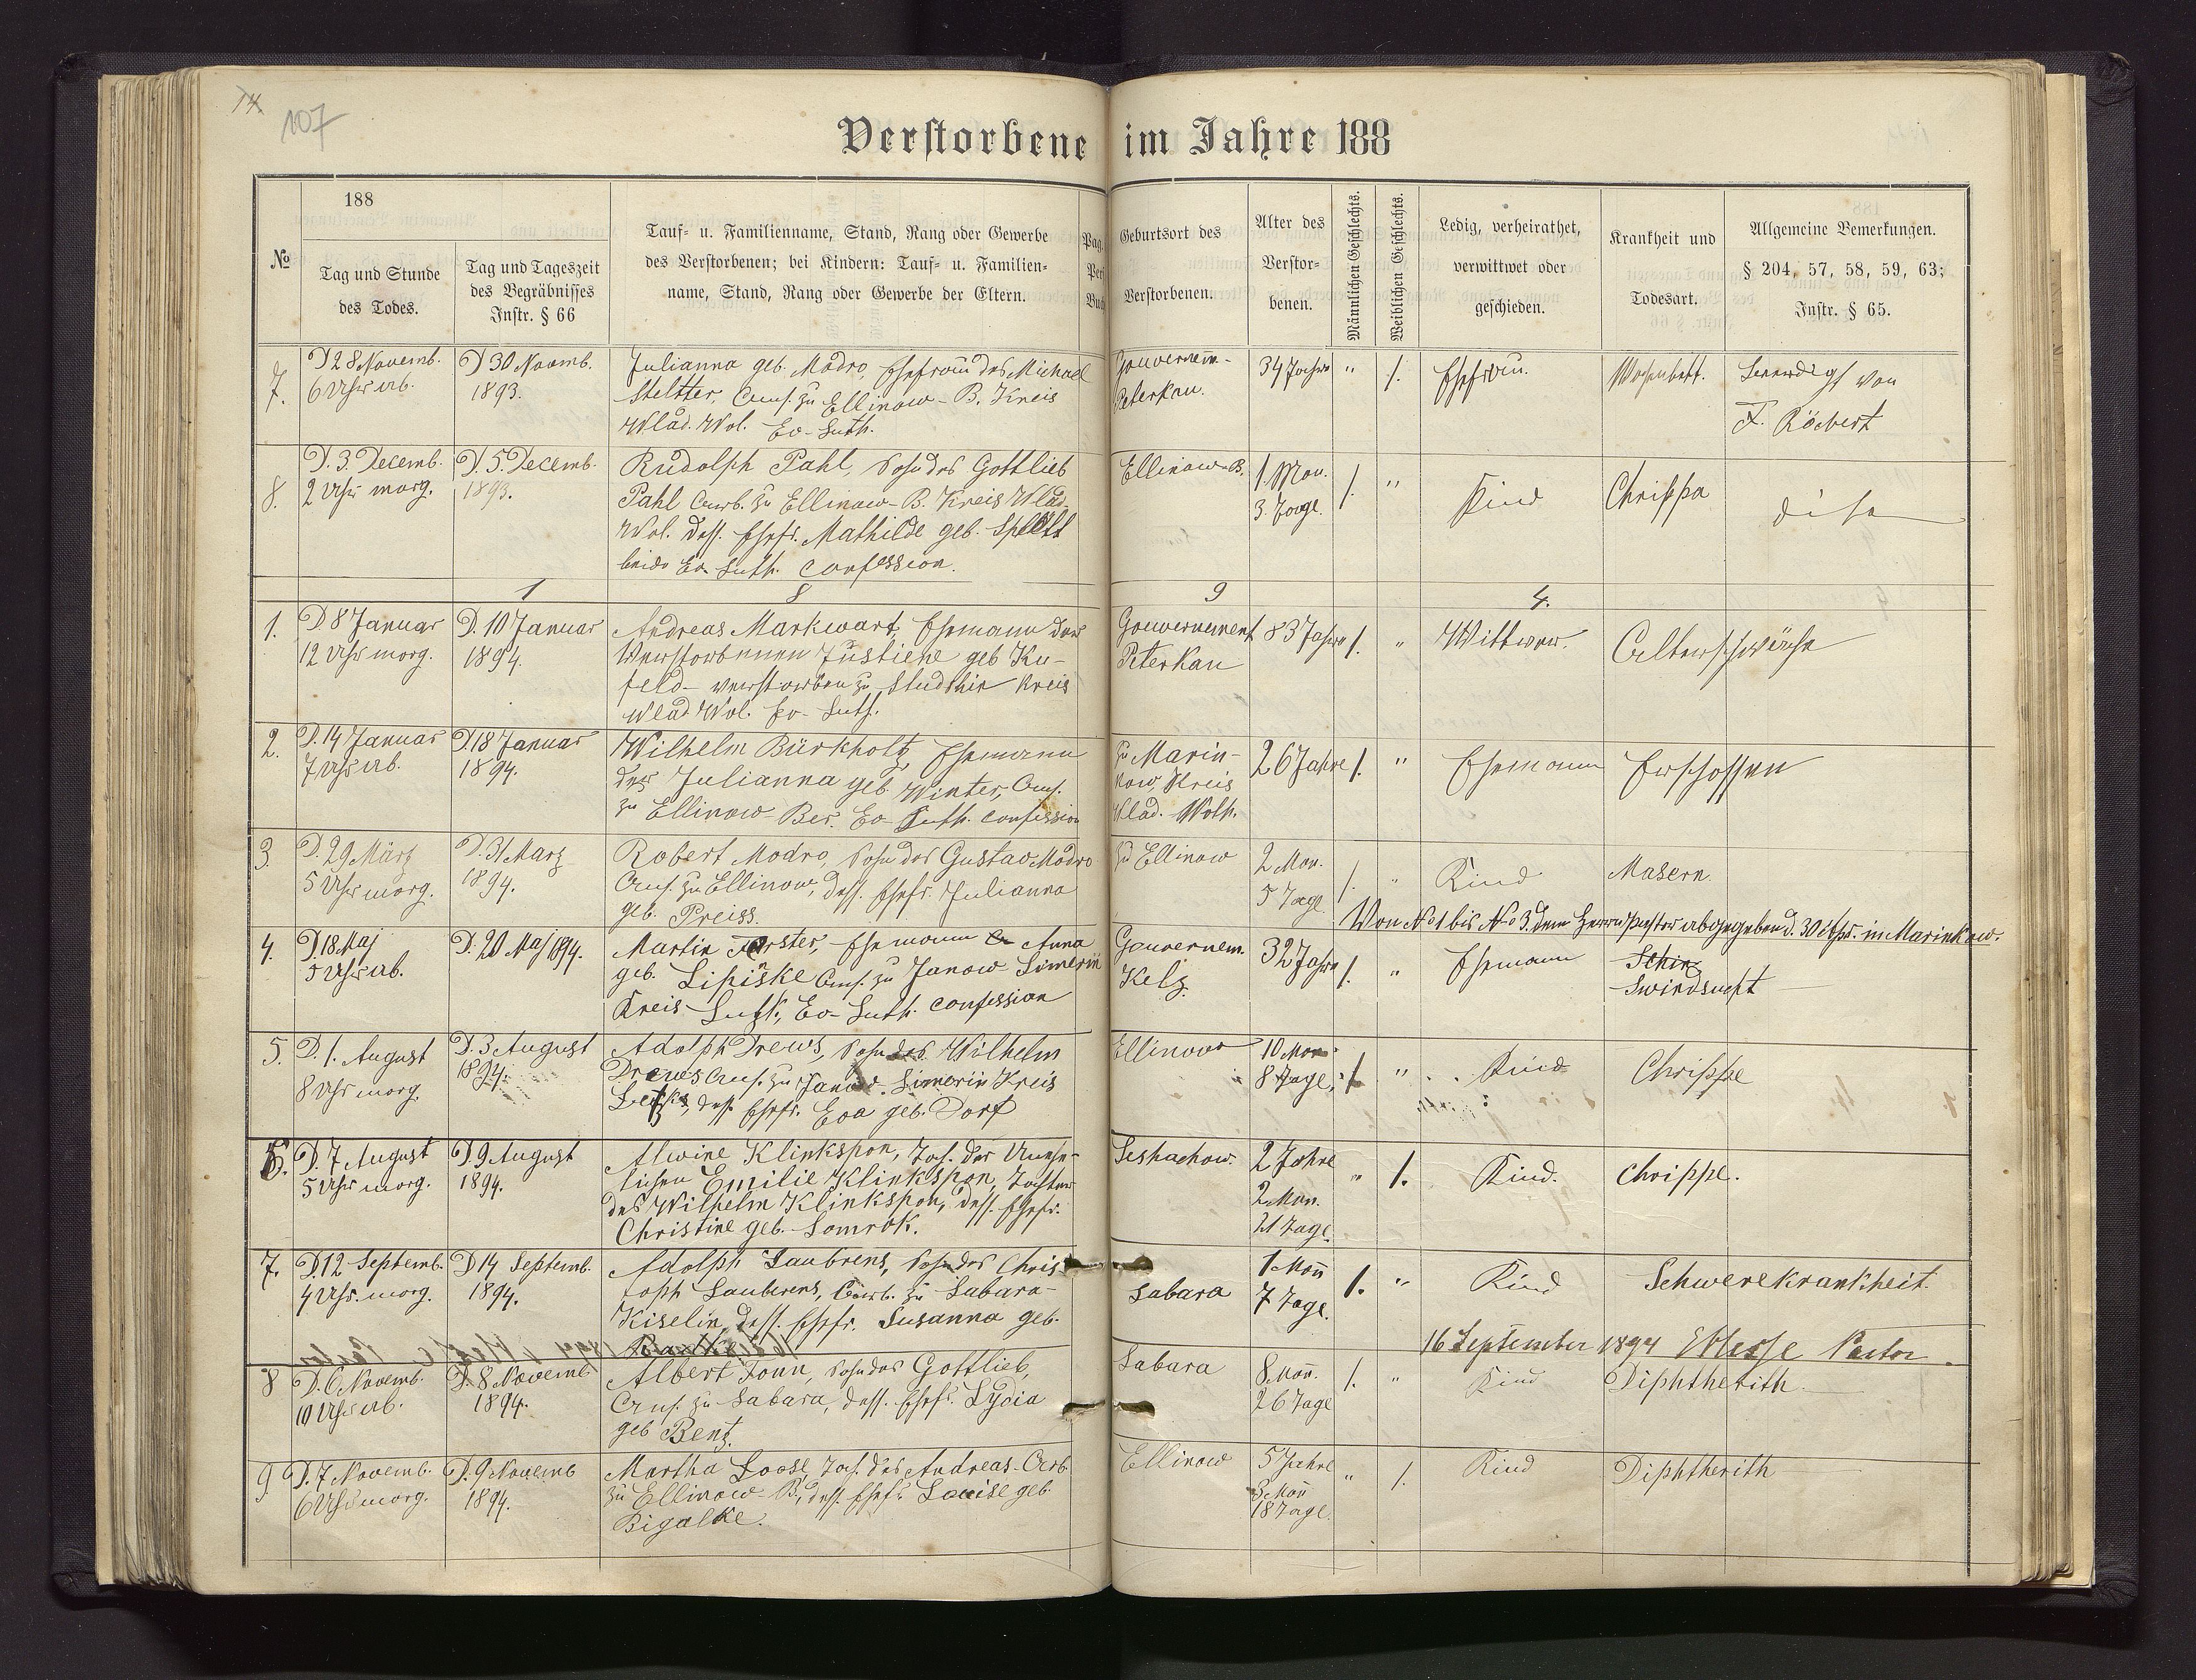 14
107
Verstorbene im Jahre 188
№
188
Tag und Stunde
des Todes.
Tag und Tageszeit
des Begräbnisses
Instr. § 66
Tauf- u. Familienname, Stand, Rang oder Gewerbe
des Verstorbenen; bei Kindern: Tauf- u. Familien-
name, Stand, Rang oder Gewerbe der Eltern.
Pag.
Per
Buch
Geburtsort des
Verstorbenen.
Alter des
Verstor-
benen.
Männlichen Geschlechts.
Weiblichen Geschlechts.
Ledig, verheirathet,
verwittwet oder
geschieden.
Krankheit und
Todesart.
Allgemeine Bemerkungen.
§ 204, 57, 58, 59, 63;
Instr. § 65.
7.
D 28 Novemb.
6 Uhr ab.
D 30 Novemb.
1893.
Julianna geb. Modro, Ehefrau des Michael
Steltter, Ans. zu Ellinow-B. Kreis
Wlad. Wol. Ev-Luth.
Gouvernem-
Peterkau.
34 Jahre
"
1.
Ehefrau.
Wochenbett.
Beerdigt von
F. Röbert
8.
D. 3. Decemb.
2 Uhr morg.
D. 5 Decemb.
1893.
Rudolph Pahl, Sohn des Gottlieb
Pahl Arb. zu Ellinow-B. Kreis Wlad.
Wol. dess. Ehefr. Mathilde geb. Splett
beide Ev. Luth. Confession.
Ellinow B.
1. Mon.
3. Tage.
1.
"
Kind
Chrippa
dito
1
8
9
4.
1.
D 8 Januar
12 Uhr morg.
D. 10 Januar
1894.
Andreas Markwart, Ehemann der
Verstorbenen Justiene geb Ku-
feld- verstorben zu Studshin Kreis
Wlad Wol. Ev-Luth.
Gouvernement
Peterkau
83 Jahre
1.
"
Wittwer.
Altersschwäche
2.
D. 14 Januar
7 Uhr ab.
D. 18 Januar
1894.
Wilhelm Bürkholtz, Ehemann
der Julianna geb Winter, Ans.
zu Ellinow-Ber. Ev-Luth. Confession
zu Marin-
kow, Kreis
Wlad. Wolh.
26 Jahre
1.
"
Ehemann
Erschossen
3.
D. 29 März
5 Uhr morg.
D. 31 Marz
1894.
Robert Modro, Sohn des Gustav Modro
Ans. zu Ellinow, dess. Ehefr. Julianna
geb. Preiss.
zu Ellinow
2 Mon.
5 Tage.
1.
"
Kind
Masern
Von No 1 bis No 3. dem Herrn Pastor abgegeben d. 30 Apr. in Marinkow.
4.
D. 18 Maj
5 Uhr ab.
D. 20 Maj 1894.
Martin Forster, Ehemann Anna
geb. Lipiske Ans. zu Janow Simerin
Kreis Luzk, Ev-Luth. Confession
Gouvernem.
Kelz.
32 Jahre
1.
"
Ehemann
Schin
Swindsucht
5.
D. 1. August
8 Uhr morg.
D. 3 August
1894.
Adolph Drews, Sohn des Wilhelm
Drews Ans. zu Janow. Simerin Kreis
Lutzk, dess. Ehefr. Eva geb. Dorf
Ellinow
10 Mon
8 Tage.
1.
"
Kind
Chrippe
6.
D. 7 August
5 Uhr morg.
D 9 August
1894.
Alwine Klinkspon, Toch. der Unehe-
lichen Emilie Klinkspon, Tochter
des Wilhelm Klinkspon, dess. Ehefr.
Christine geb. Somrok.
Seshachow.
2 Jahre
2 Mon.
21 Tage.
"
1.
Kind.
Chrippe.
7.
D. 12 Septemb.
4 Uhr. morg.
D 14 Septemb.
1894.
Adolph Laubrens, Sohn des Chris
toph Laubrens, Arb. zu Sabara-
Kiselin, dess. Ehefr. Susanna geb.
Sabara
1 Mon
7 Tage.
1.
"
Kind
Schwerekrankheit.
16 September 1894 Pastor.
8
D. 6 Novemb.
10 Uhr ab.
D. 8 Novemb
1894.
Albert Jonn, Sohn des Gottlieb,
Ans. zu Sabara, dess. Ehefr. Lydia
geb Benz.
Sabara
8 Mon.
26 Tage
1.
"
Kind
Diphtherith
9
D. 7 Novemb.
6 Uhr morg.
D. 9 Novemb
1894.
Martha Loose, Toch. des Andreas Arb.
zu Ellinow-B, dess. Ehefr. Louise geb.
Bigalke.
Ellinow
5 Jahre
3 Mon
18 Tage.
"
1.
Kind
Diphtherith